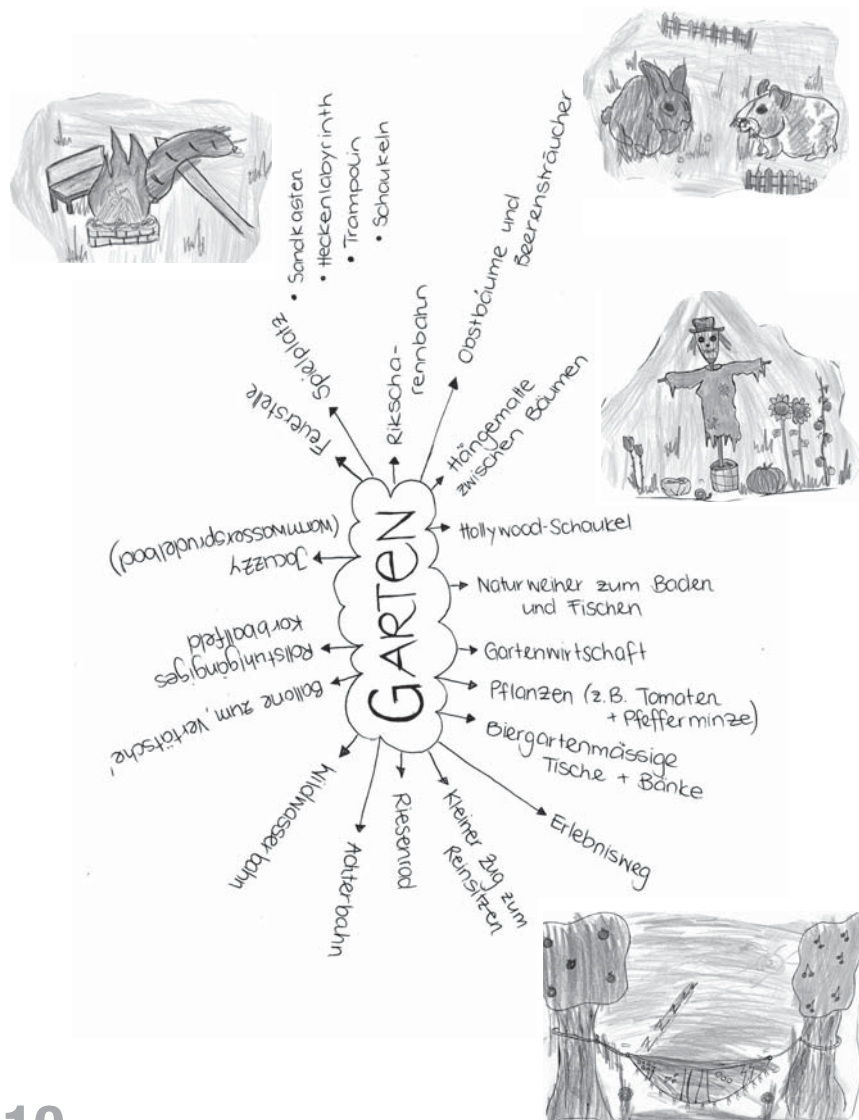 • Sandkasten
• Heckenlabyrinth
• Trampolin
• Schaukeln
Spielplatz
Feuerstelle
Rikscha-
rennbahn
Obstbäume und
Beerensträucher
Hängematte
zwischen Bäumen
Hollywood-Schaukel
Naturweiher zum Baden
und Fischen
Gartenwirtschaft
Pflanzen (z.B. Tomaten
+ Pfefferminze)
Biergartenmässige
Tische + Bänke
Erlebnisweg
Kleiner Zug zum
Reinsitzen
Riesenrad
Achterbahn
Wildwasserbahn
Ballone zum 'Vertätsche'
Rollstuhlgängiges
Korbballfeld
Jacuzzy
(Warmwassersprudelbad)
GARTEN
10